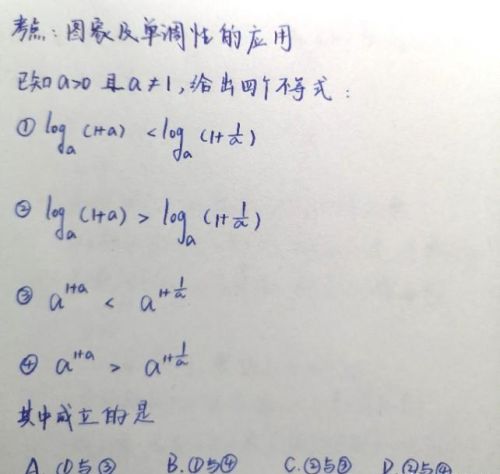 考点：图象及单调性的应用
已知a>0且a≠1，给出四个不等式：
① log_a (1+a) < log_a (1+1/a)
② log_a (1+a) > log_a (1+1/a)
③ a^(1+a) < a^(1+1/a)
④ a^(1+a) > a^(1+1/a)
其中成立的是
A. ①与③ B. ①与④ C. ②与③ D. ②与④